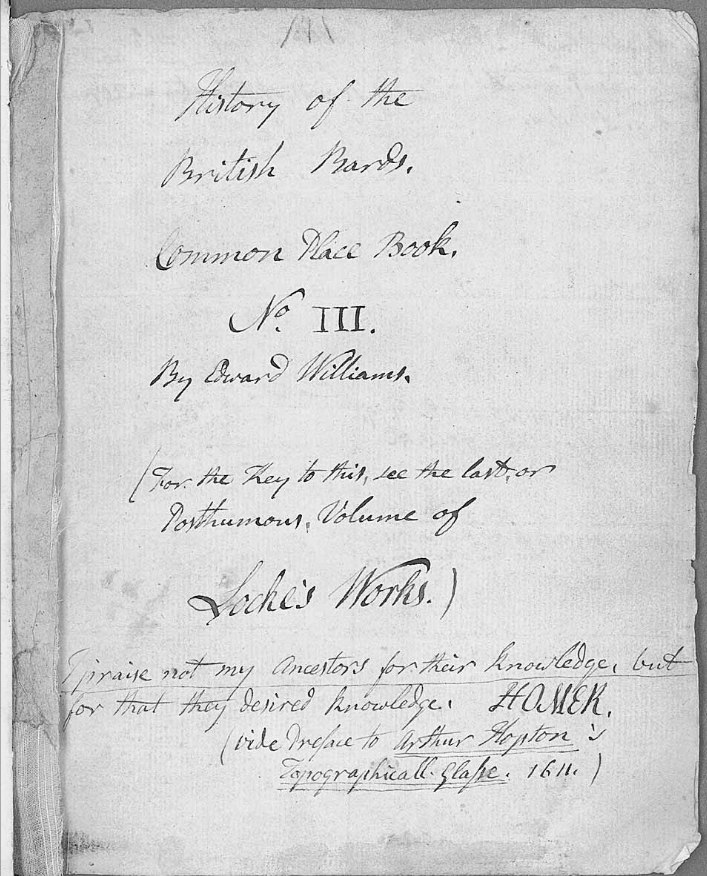 History of the
British Bards.
Common Place Book.
No. III.
By Edward Williams.
(For the Key to this, see the last, or
Posthumous, Volume of
Locke's Works.)
I praise not my Ancestors for their knowledge, but
for that they desired knowledge. HOMER.
(vide Preface to Arthur Hopton's
Topographicall Glasse. 1611.)